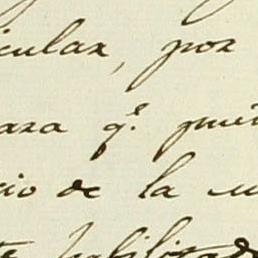 icular, por
ara q.e pue
cio de la u
te habilitado